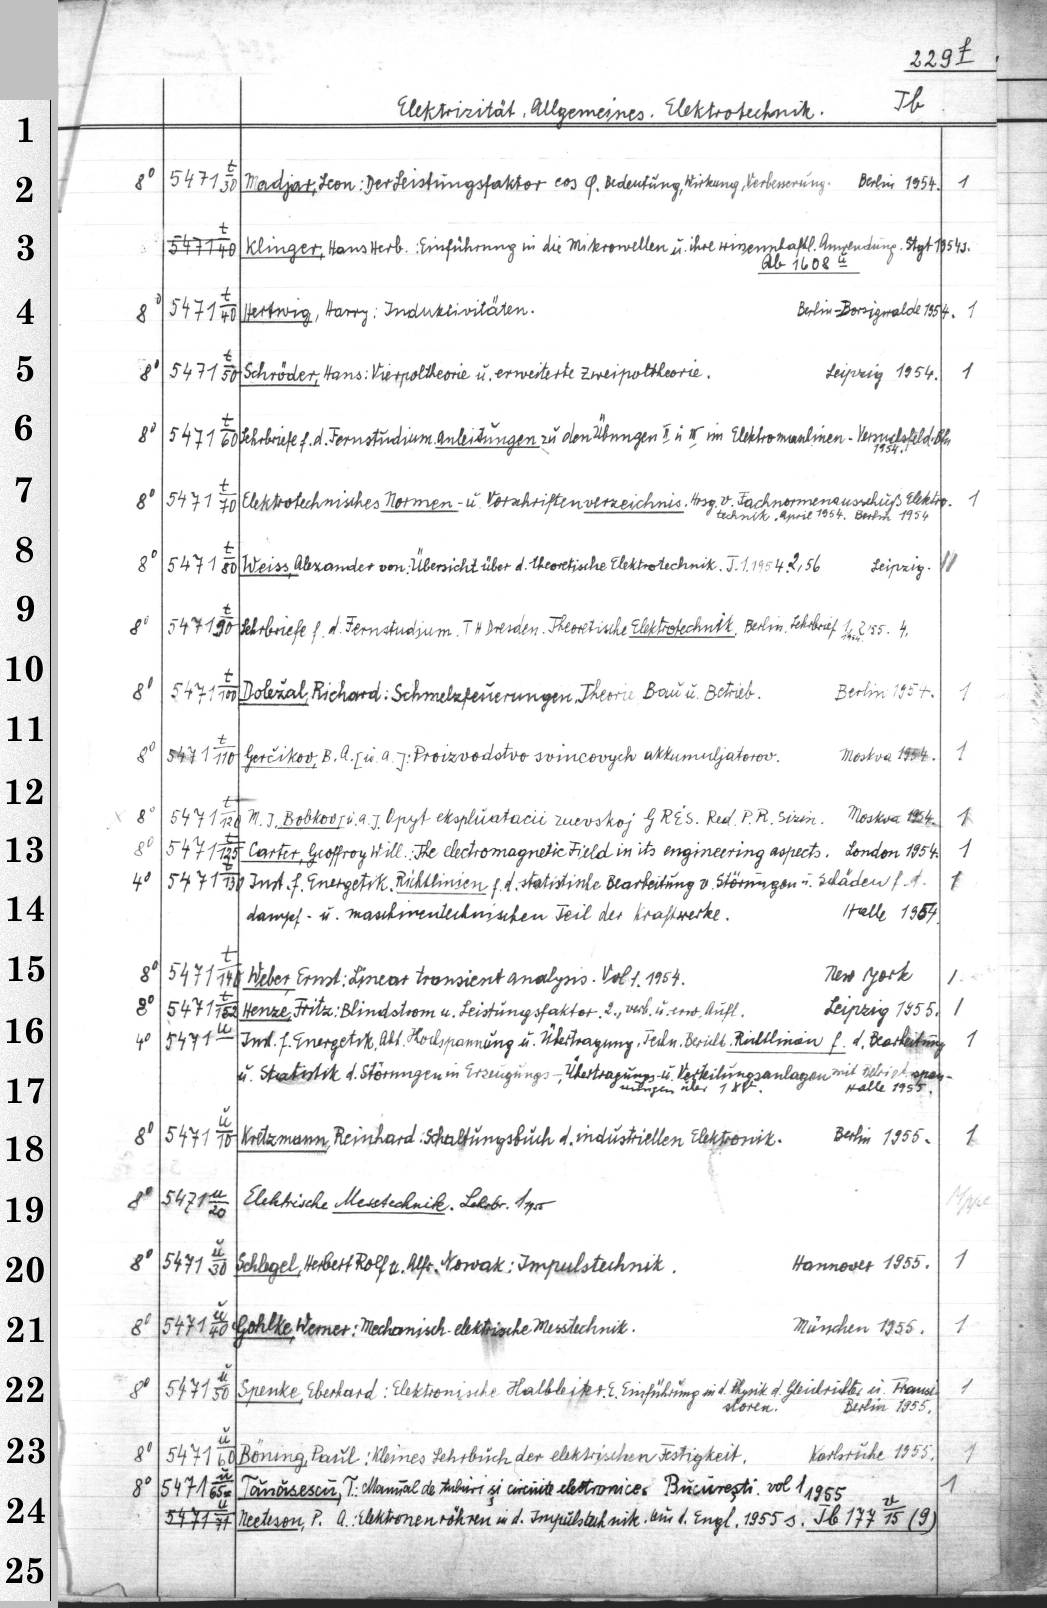 229 f
Elektrizität. Allgemeines. Elektrotechnik. Ib
1
2 8° 5471 t/30 Madjar, Leon: Der Leistungsfaktor cos φ. Bedeutung, Wirkung, Verbesserung. Berlin 1954. 1
3 5471 t/40 Klinger, Hans Herb.: Einführung in die Mikrowellen u. ihre wissenschaftl. Anwendung. Stgt 1954 s.
Ab 1608 u
4 8° 5471 t/40 Hertwig, Harry: Induktivitäten. Berlin-Borsigwalde 1954. 1
5 8° 5471 t/50 Schröder, Hans: Vierpoltheorie u. erweiterte Zweipoltheorie. Leipzig 1954. 1
6 8° 5471 t/60 Lehrbriefe f. d. Fernstudium. Anleitungen zu den Übungen II u IV im Elektromaschinen-Versuchsfeld. Bln
1954.
7 8° 5471 t/70 Elektrotechnisches Normen- u. Vorschriftenverzeichnis. Hrsg. v. Fachnormenausschuß Elektro- 1
technik. April 1954. Berlin 1954
8 8° 5471 t/80 Weiss, Alexander von: Übersicht über d. theoretische Elektrotechnik. T. 1. 1954. 2, 56 Leipzig. 11
9 8° 5471 t/90 Lehrbriefe f. d. Fernstudium. TH Dresden. Theoretische Elektrotechnik. Berlin. Lehrbrief 1, 2, 55. 4.
1954
10 8° 5471 t/100 Doležal, Richard: Schmelzfeuerungen, Theorie Bau u. Betrieb. Berlin 1954. 1
11 8° 5471 t/110 Gorčikov, B. A. [u. a.]: Proizvodstvo svincovych akkumuljatorov. Moskva 1954. 1
12 8° 5471 t/120 M. I. Bobkov [u. a.]. Opyt ekspluatacii zuevskoj GRĖS. Red. P. R. Sizin. Moskva 1954. 1
13 8° 5471 t/125 Carter, Geoffroy Will.: The electromagnetic Field in its engineering aspects. London 1954. 1
4° 5471 t/130 Inst. f. Energetik. Richtlinien f. d. statistische Bearbeitung v. Störungen u. Schäden f. d. 1
14 dampf- u. maschinentechnischen Teil der Kraftwerke. Halle 1954.
15 8° 5471 t/140 Weber, Ernst: Linear transient analysis. Vol. 1. 1954. New York 1.
8° 5471 t/152 Henze, Fritz: Blindstrom u. Leistungsfaktor. 2., verb. u. erw. Aufl. Leipzig 1955. 1
16 4° 5471 u Inst. f. Energetik. Abt. Hochspannung u. Übertragung. Techn. Bericht. Richtlinien f. d. Bearbeitung 1
17 u. Statistik d. Störungen in Erzeugungs-, Übertragungs- u. Verteilungsanlagen mit Betriebsspan-
nungen über 1 kV. Halle 1955.
18 8° 5471 u/10 Kretzmann, Reinhard: Schaltungsbuch d. industriellen Elektronik. Berlin 1955. 1
19 8° 5471 u/20 Elektrische Messtechnik. Lehrbr. 1 1955
20 8° 5471 u/30 Schlegel, Herbert Rolf u. Alfr. Nowak: Impulstechnik. Hannover 1955. 1
21 8° 5471 u/40 Gohlke, Werner: Mechanisch-elektrische Messtechnik. München 1955. 1
22 8° 5471 u/50 Spenke, Eberhard: Elektronische Halbleiter. E. Einführung in d. Physik d. Gleichrichter u. Transi- 1
storen. Berlin 1955.
23 8° 5471 u/60 Böning, Paul: Kleines Lehrbuch der elektrischen Festigkeit. Karlsruhe 1955. 1
8° 5471 u/65a Tănăsescu, T.: Manual de tuburi și circuite electronice. București. vol 1 1955 1
24 5471 u/71 Neeteson, P. A.: Elektronenröhren in d. Impulstechnik. aus d. Engl. 1955 s. Ib 177 v/15 (9)
25